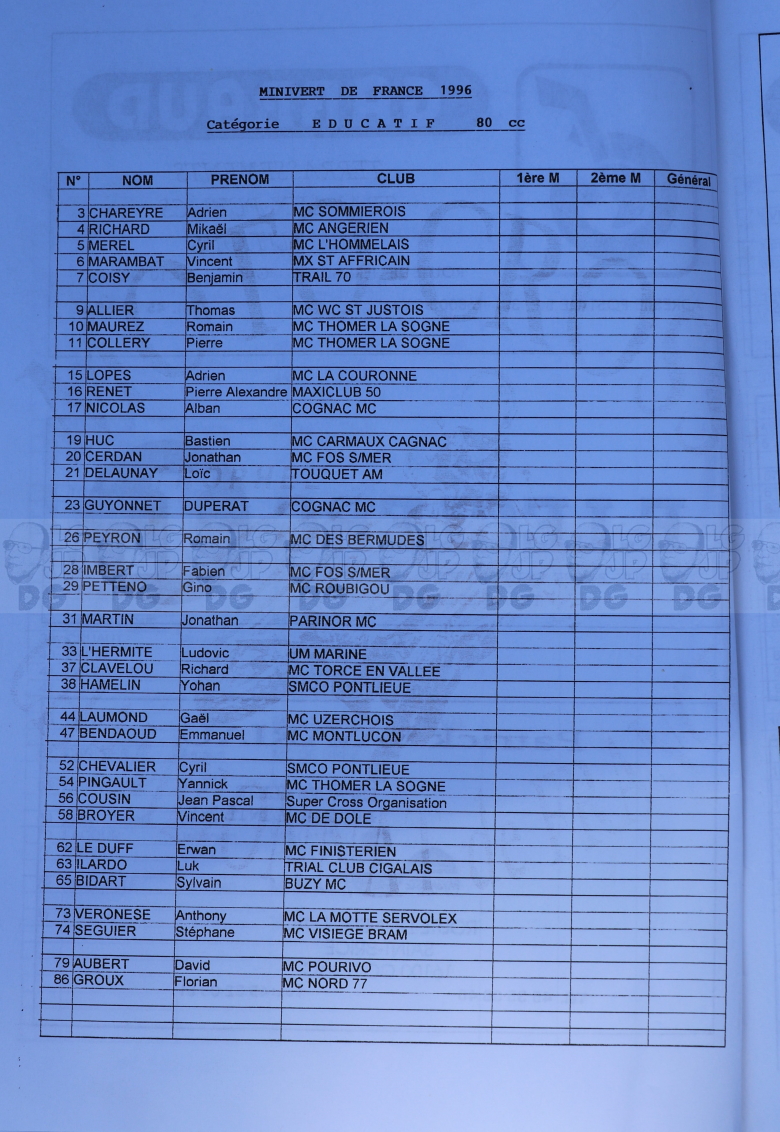 MINIVERT DE FRANCE 1996
Catégorie E D U C A T I F 80 cc
N° NOM PRENOM CLUB 1ère M 2ème M Général
3 CHAREYRE Adrien MC SOMMIEROIS
4 RICHARD Mikaël MC ANGERIEN
5 MEREL Cyril MC L'HOMMELAIS
6 MARAMBAT Vincent MX ST AFFRICAIN
7 COISY Benjamin TRAIL 70
9 ALLIER Thomas MC WC ST JUSTOIS
10 MAUREZ Romain MC THOMER LA SOGNE
11 COLLERY Pierre MC THOMER LA SOGNE
15 LOPES Adrien MC LA COURONNE
16 RENET Pierre Alexandre MAXICLUB 50
17 NICOLAS Alban COGNAC MC
19 HUC Bastien MC CARMAUX CAGNAC
20 CERDAN Jonathan MC FOS S/MER
21 DELAUNAY Loïc TOUQUET AM
23 GUYONNET DUPERAT COGNAC MC
26 PEYRON Romain MC DES BERMUDES
28 IMBERT Fabien MC FOS S/MER
29 PETTENO Gino MC ROUBIGOU
31 MARTIN Jonathan PARINOR MC
33 L'HERMITE Ludovic UM MARINE
37 CLAVELOU Richard MC TORCE EN VALLEE
38 HAMELIN Yohan SMCO PONTLIEUE
44 LAUMOND Gaël MC UZERCHOIS
47 BENDAOUD Emmanuel MC MONTLUCON
52 CHEVALIER Cyril SMCO PONTLIEUE
54 PINGAULT Yannick MC THOMER LA SOGNE
56 COUSIN Jean Pascal Super Cross Organisation
58 BROYER Vincent MC DE DOLE
62 LE DUFF Erwan MC FINISTERIEN
63 ILARDO Luk TRIAL CLUB CIGALAIS
65 BIDART Sylvain BUZY MC
73 VERONESE Anthony MC LA MOTTE SERVOLEX
74 SEGUIER Stéphane MC VISIEGE BRAM
79 AUBERT David MC POURIVO
86 GROUX Florian MC NORD 77